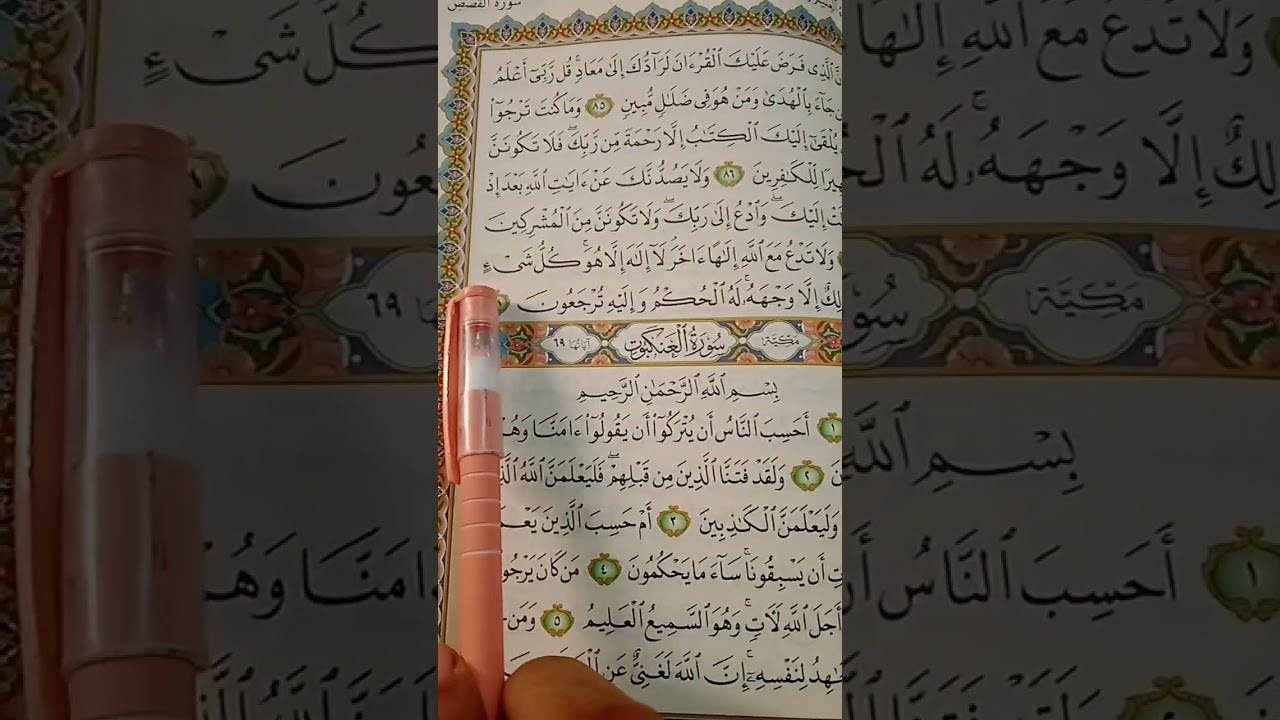 سورة القصص
الَّذِى فَرَضَ عَلَيْكَ الْقُرْءَانَ لَرَآدُّكَ إِلَىٰ مَعَادٍ ۚ قُل رَّبِّىٓ أَعْلَمُ
جَآءَ بِالْهُدَىٰ وَمَنْ هُوَ فِى ضَلَٰلٍ مُّبِينٍ ٨٥ وَمَا كُنتَ تَرْجُوٓا۟
يُلْقَىٰٓ إِلَيْكَ الْكِتَٰبُ إِلَّا رَحْمَةً مِّن رَّبِّكَ ۖ فَلَا تَكُونَنَّ
لِّلْكَٰفِرِينَ ٨٦ وَلَا يَصُدُّنَّكَ عَنْ ءَايَٰتِ اللَّهِ بَعْدَ إِذْ
إِلَيْكَ ۖ وَادْعُ إِلَىٰ رَبِّكَ ۖ وَلَا تَكُونَنَّ مِنَ الْمُشْرِكِينَ
وَلَا تَدْعُ مَعَ اللَّهِ إِلَٰهًا ءَاخَرَ ۘ لَآ إِلَٰهَ إِلَّا هُوَ ۚ كُلُّ شَىْءٍ
إِلَّا وَجْهَهُۥ ۚ لَهُ الْحُكْمُ وَإِلَيْهِ تُرْجَعُونَ
مَكِّيَّة سُورَةُ الْعَنكَبُوتِ آيَاتُهَا ٦٩
بِسْمِ اللَّهِ الرَّحْمَٰنِ الرَّحِيمِ
١ أَحَسِبَ النَّاسُ أَن يُتْرَكُوٓا۟ أَن يَقُولُوٓا۟ ءَامَنَّا وَهُمْ
٢ وَلَقَدْ فَتَنَّا الَّذِينَ مِن قَبْلِهِمْ ۖ فَلَيَعْلَمَنَّ اللَّهُ
وَلَيَعْلَمَنَّ الْكَٰذِبِينَ ٣ أَمْ حَسِبَ الَّذِينَ
أَن يَسْبِقُونَا ۚ سَآءَ مَا يَحْكُمُونَ ٤ مَن كَانَ يَرْجُوا۟
أَجَلَ اللَّهِ لَءَاتٍ ۚ وَهُوَ السَّمِيعُ الْعَلِيمُ ٥ وَمَن
لِنَفْسِهِۦٓ ۚ إِنَّ اللَّهَ لَغَنِىٌّ عَنِ